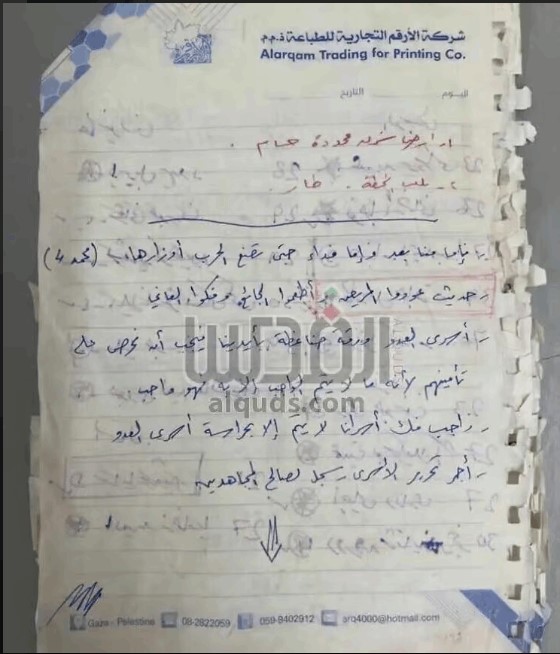 شركة الأرقم التجارية للطباعة ذ.م.م
Alarqam Trading for Printing Co.
اليوم التاريخ
فإما منا بعد وإما فداء حتى تضع الحرب أوزارها (محمد 4)
حديث عودوا المريض وأطعموا الجائع وفكوا العاني
أسرى العدو ورقة ضاغطة بأيدينا فيجب أن نحرص على
تأمينهم لأنه ما لا يتم الواجب إلا به فهو واجب
واجب فك أسرانا لا يتم إلا بحراسة أسرى العدو
أجر تحرير الأسرى يسجل لصالح المجاهدين
القدس
alquds.com
Gaza - Palestine 08-2822059 059-9402912 arq4000@hotmail.com